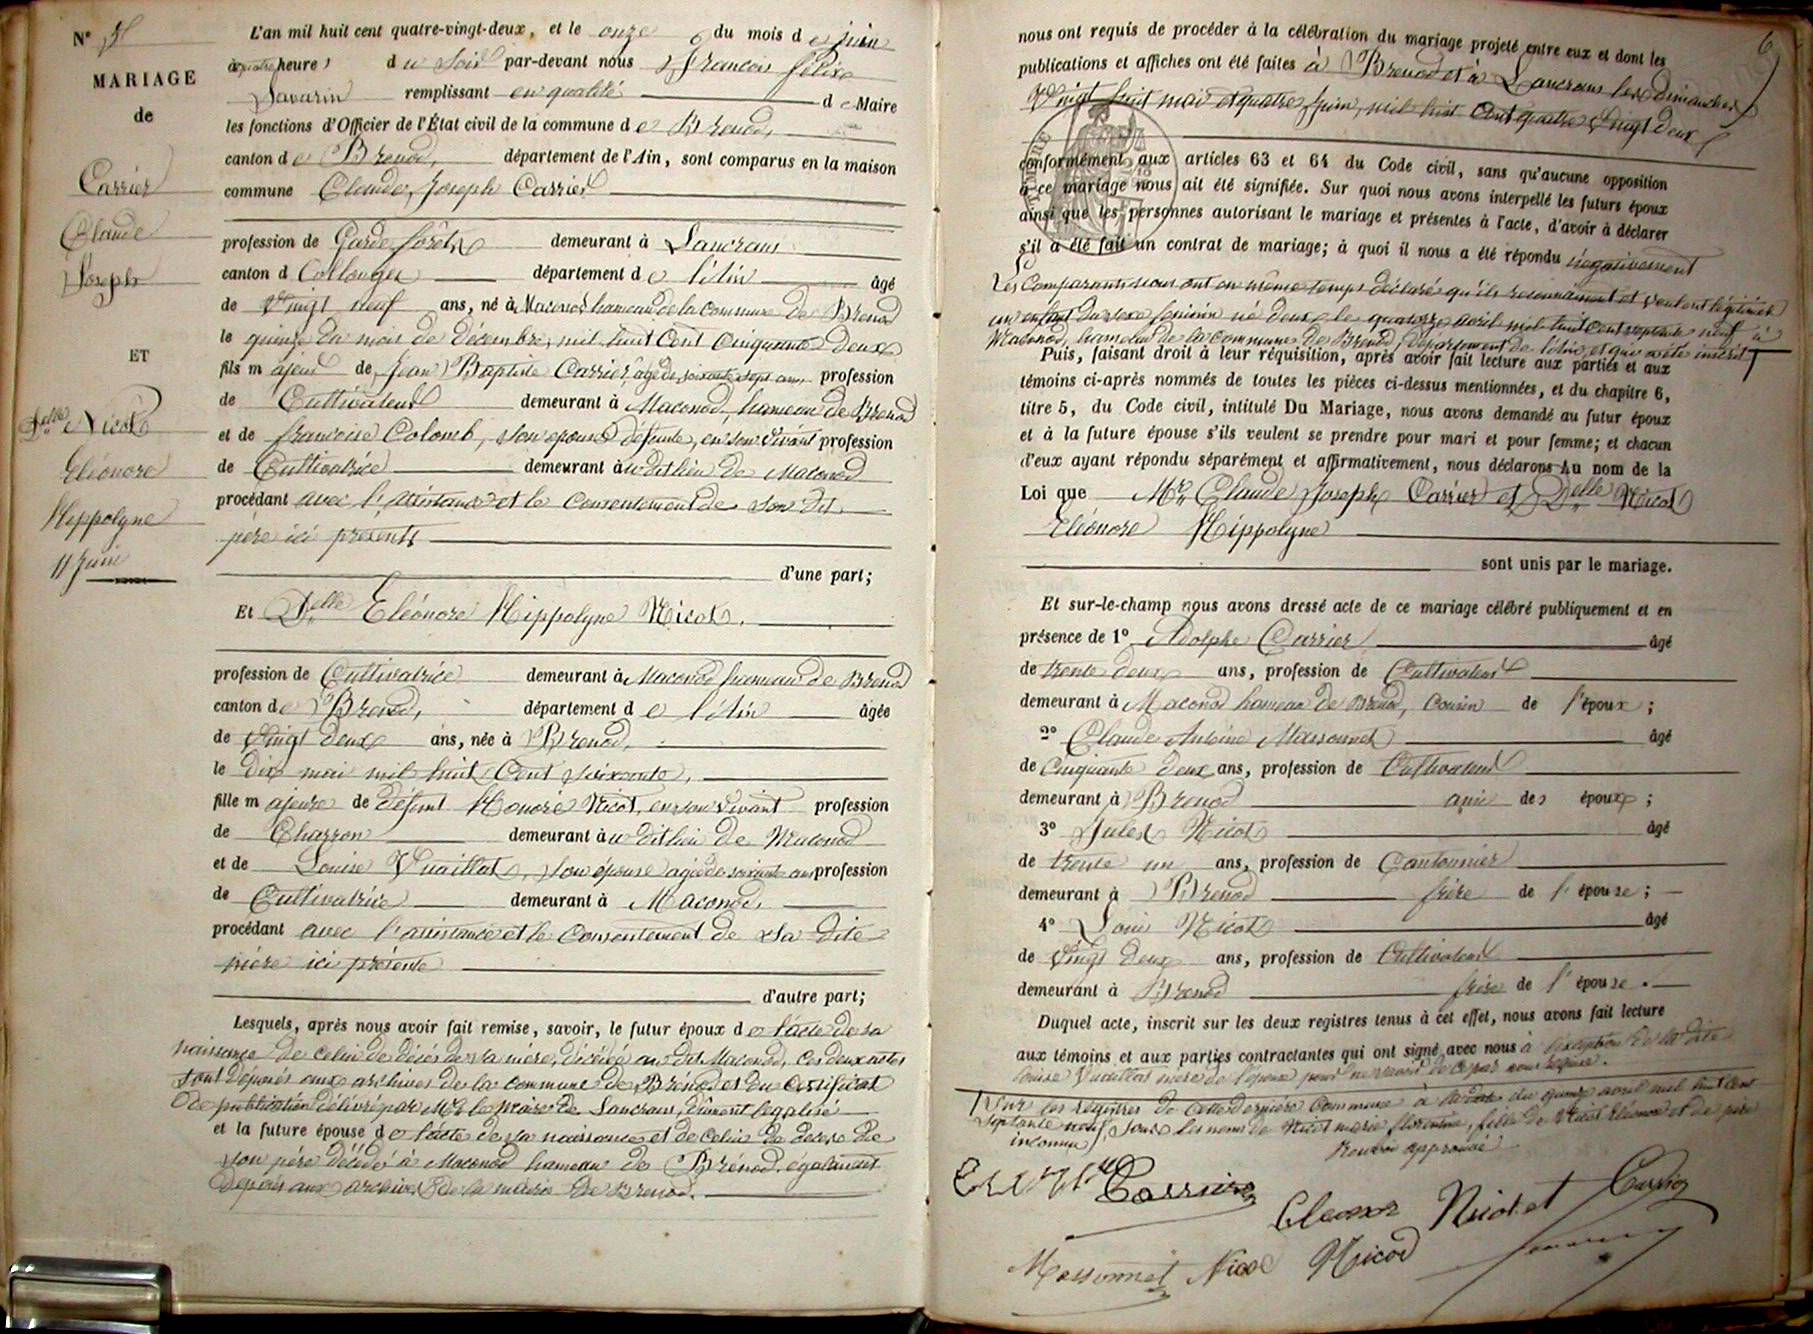 N° 5
MARIAGE
de
Carrier
Claude
Joseph
ET
Delle Nicot
Eléonore
Hippolyne
11 Juin
L'an mil huit cent quatre-vingt-deux, et le onze du mois de juin
à quatre heures du Soir par-devant nous François félix
Savarin remplissant en qualité de Maire
les fonctions d'Officier de l'État civil de la commune de Brenod,
canton de Brenod, département de l'Ain, sont comparus en la maison
commune Claude, Joseph Carrier
profession de Garde forêts demeurant à Lancrans
canton d Collonges département de l'Ain âgé
de Vingt neuf ans, né à Maconod hameau de la Commune de Brenod
le quinze du mois de Décembre, mil huit Cent Cinquante Deux
fils majeur de Jean Baptiste Carrier, âgé de soixante sept ans, profession
de Cultivateur demeurant à Maconod, hameau de Brenod
et de francoise Colomb, son epouse défunte, en son vivant profession
de Cultivatrice demeurant au dit lieu de Maconod
procédant avec l'assistance et le consentement de son dit
père ici présent
d'une part;
Et Delle Eléonore Hippolyne Nicot,
profession de Cultivatrice demeurant à Maconod hameau de Brenod
canton de Brenod, département de l'Ain âgée
de Vingt deux ans, née à Brenod,
le dix mai mil huit Cent soixante,
fille majeure de défunt Honoré Nicot, en son vivant profession
de Charron demeurant au dit lieu de Maconod
et de Louise Vuaillat, son épouse agée de soixante ans profession
de Cultivatrice demeurant à Maconod,
procédant avec l'assistance et le Consentement de sa dite
mère ici présente
d'autre part;
Lesquels, après nous avoir fait remise, savoir, le futur époux de l'acte de sa
naissance de celui de décès de sa mère, décédée au dit Maconod, ces deux actes
sont déposés aux archives de la commune de Brénod et du Certificat
de publication délivré par Mr le Maire de Lancrans, dûment legalisé
et la future épouse de l'acte de sa naissance et de celui de décès de
son père décédé à Maconod hameau de Brénod, également
déposés aux archives de la mairie de Brenod.
6
nous ont requis de procéder à la célébration du mariage projeté entre eux et dont les
publications et affiches ont été faites à Brenod et à Lancrans les dimanches
Vingt huit mai et quatre Juin, mil huit Cent quatre Vingt deux
conformément aux articles 63 et 64 du Code civil, sans qu'aucune opposition
à ce mariage nous ait été signifiée. Sur quoi nous avons interpellé les futurs époux
ainsi que les personnes autorisant le mariage et présentes à l'acte, d'avoir à déclarer
s'il a été fait un contrat de mariage; à quoi il nous a été répondu négativement
Les Comparants nous ont en même temps déclaré qu'ils reconnaissent et veulent légitimer
un enfant du sexe féminin né d'eux le quatorze avril mil huit cent septante neuf à
Maconod, hameau de la commune de Brenod, département de l'Ain, et qui a été inscrit
Puis, faisant droit à leur réquisition, après avoir fait lecture aux parties et aux
témoins ci-après nommés de toutes les pièces ci-dessus mentionnées, et du chapitre 6,
titre 5, du Code civil, intitulé Du Mariage, nous avons demandé au futur époux
et à la future épouse s'ils veulent se prendre pour mari et pour femme; et chacun
d'eux ayant répondu séparément et affirmativement, nous déclarons Au nom de la
Loi que Mr Claude Joseph Carrier et Delle Nicot
Eléonore Hippolyne
sont unis par le mariage.
Et sur-le-champ nous avons dressé acte de ce mariage célébré publiquement et en
présence de 1° Adolphe Carrier âgé
de trente deux ans, profession de Cultivateur
demeurant à Maconod hameau de Brenod, Cousin de l'époux;
2° Claude Antoine Massonnet âgé
de Cinquante deux ans, profession de Cultivateur
demeurant à Brenod ami des époux;
3° Jules Nicot âgé
de trente un ans, profession de Cantonnier
demeurant à Brenod frère de l'épouse;
4° Louis Nicot âgé
de Vingt deux ans, profession de Cultivateur
demeurant à Brenod frère de l'épouse.
Duquel acte, inscrit sur les deux registres tenus à cet effet, nous avons fait lecture
aux témoins et aux parties contractantes qui ont signé avec nous à l'exception de la dite
Louise Vuaillat mère de l'épouse pour ne savoir de ce par nous requise.
Sur les registres de cette dernière Commune à la date du quinze avril mil huit cent
septante neuf, sous les noms de Nicot marie florentine, fille de Nicot Eléonore et de père
inconnu, Renvoi approuvé
Carrier
Eleonor Nicot et Carrier
Massonnet Nicod Nicod